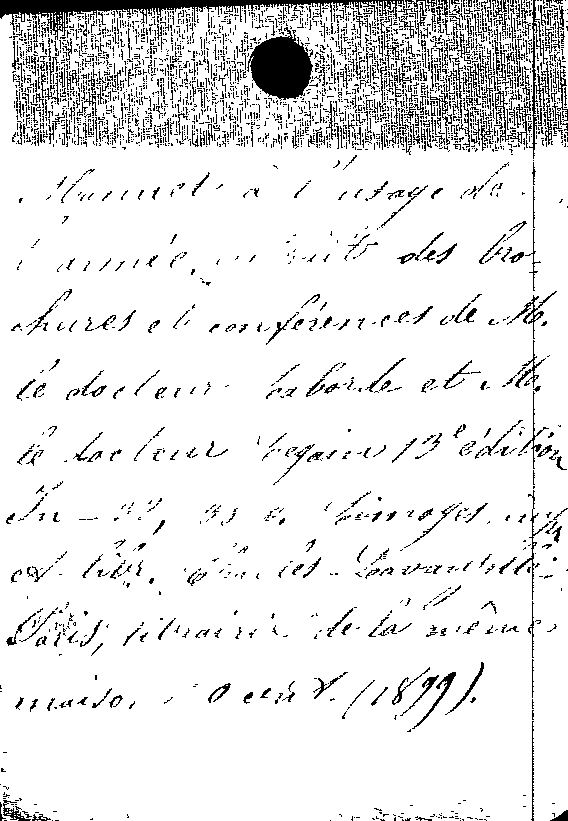 Manuel à l'usage de
l'armée, extrait des bro-
chures et conférences de M.
le docteur Laborde et M.
le docteur Legrain 13e édition
In-32, 32 p. Limoges, imp.
et libr. Charles-Lavauzelle;
Paris, librairie de la même
maison. cent. (1899).